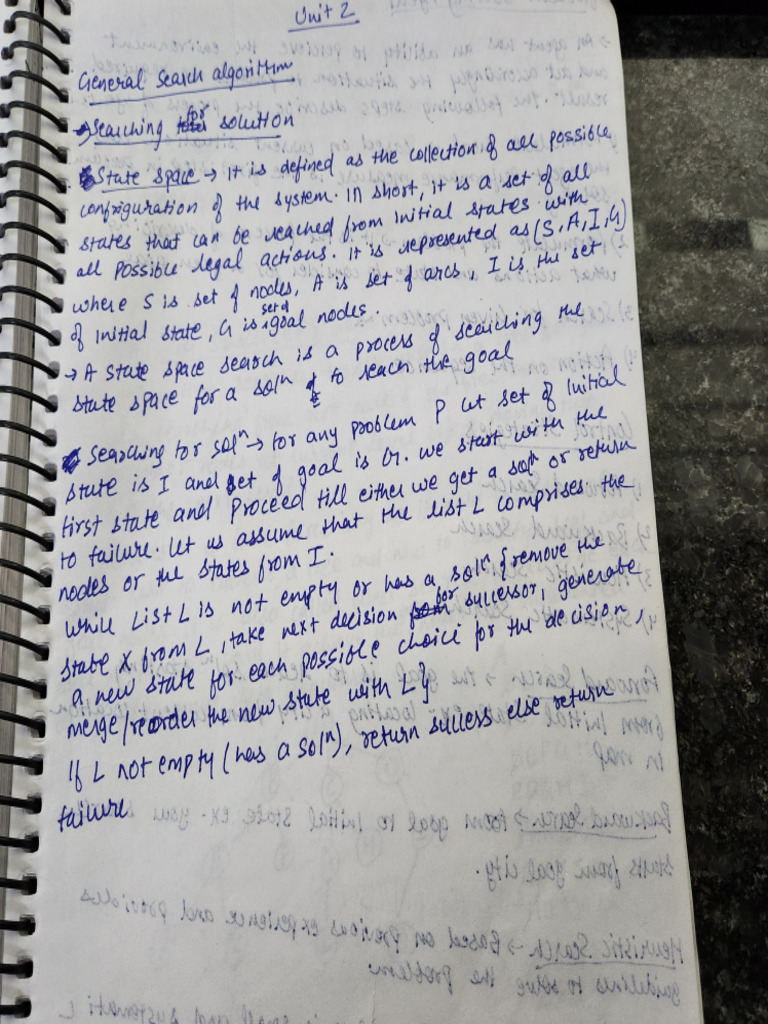 Unit 2
General Search algorithm
→ Searching for solution
State space → It is defined as the collection of all possible
configuration of the system. In short, it is a set of all
states that can be reached from initial states with
all possible legal actions. It is represented as (S, A, I, G)
where S is set of nodes, A is set of arcs, I is the set
of initial state, G is set of goal nodes.
→ A state space search is a process of searching the
state space for a solⁿ to reach the goal
Searching for solⁿ → for any problem P let set of initial
state is I and set of goal is G. we start with the
first state and proceed till either we get a solⁿ or return
to failure. Let us assume that the list L comprises the
nodes or the states from I.
while List L is not empty or has a solⁿ {remove the
state X from L, take next decision for successor, generate
a new state for each possible choice for the decision,
merge/reorder the new state with L}
If L not empty (has a solⁿ), return success else return
failure